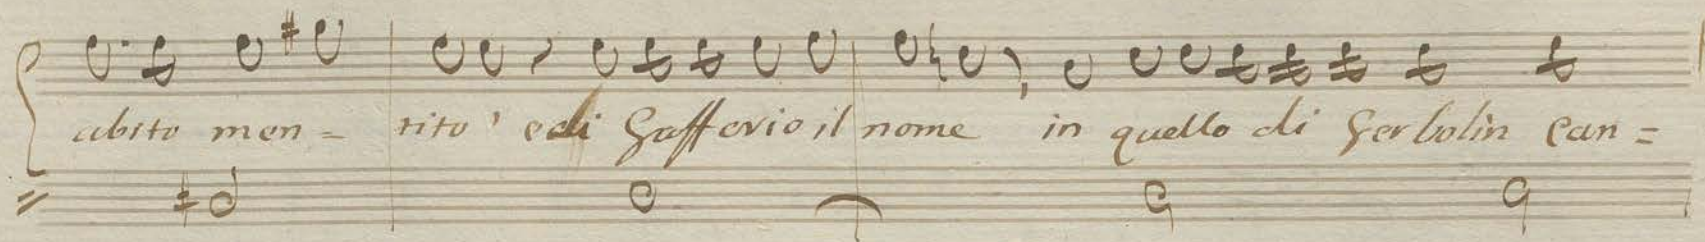 abito men = tito' e di Gafforio il nome in quello di Gerbolin can =